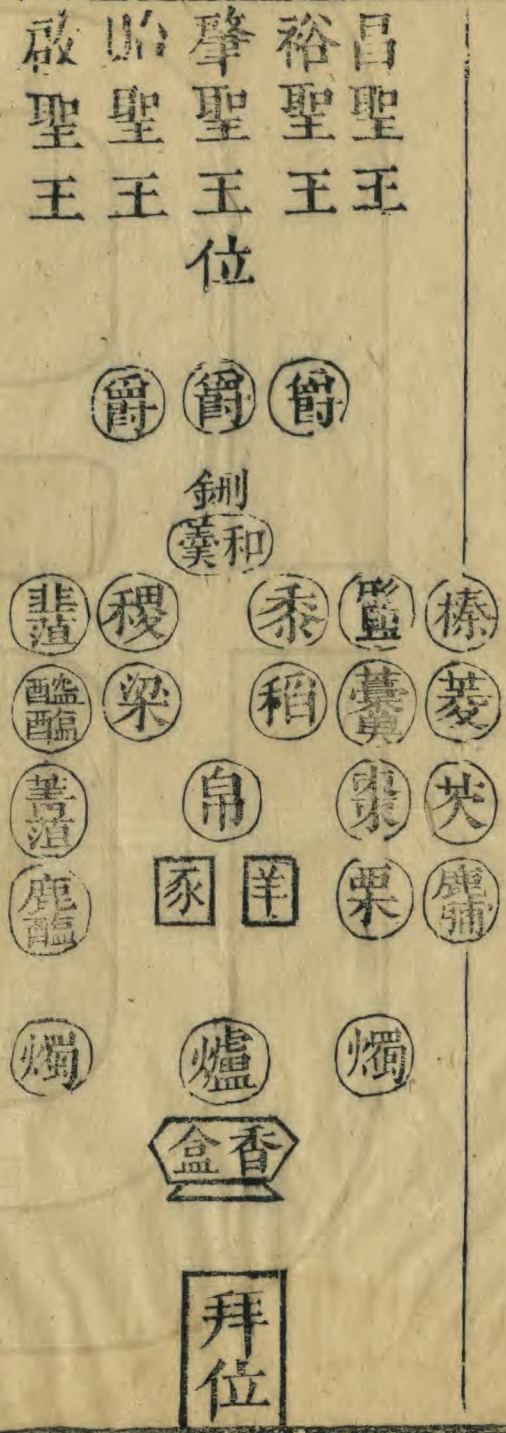 昌聖王
裕聖王
肇聖王
貽聖王
啟聖王
位
爵 爵 爵
鉶
和羹
榛 形鹽 黍 稷 韭菹
菱 藁魚 稻 梁 醓醢
芡 棗 帛 菁菹
鹿脯 栗 羊 豕 鹿醢
燭 爐 燭
香盒
拜位